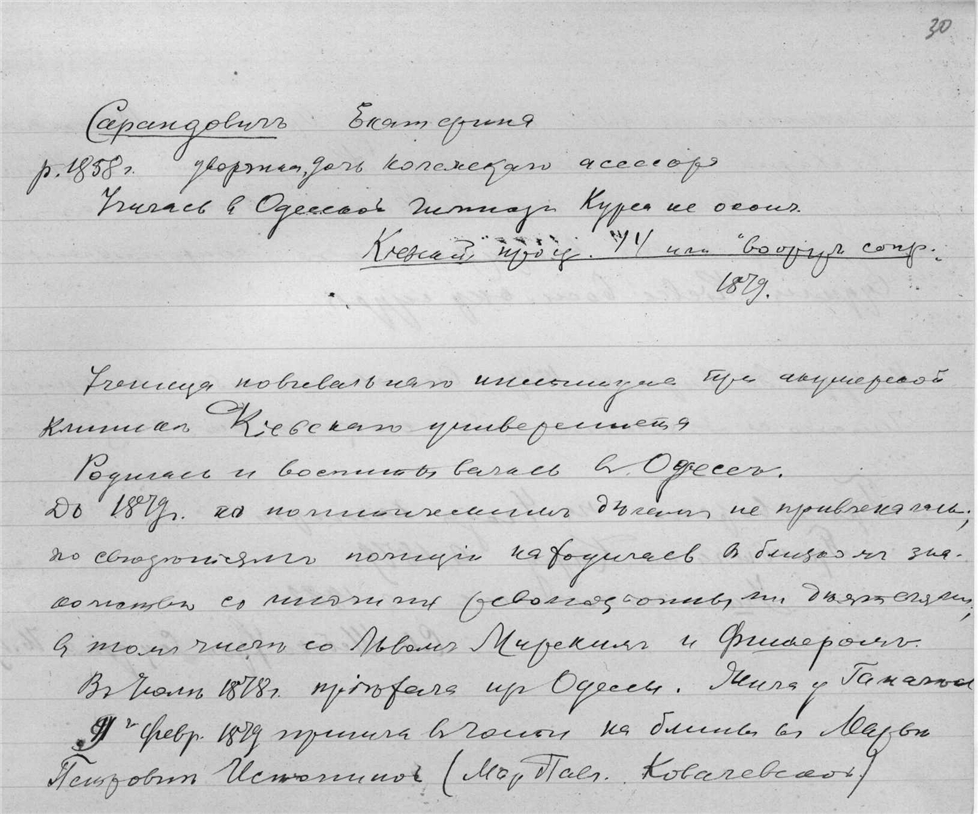 30
Сарандовичъ Екатерина
р. 1858 г. дворянка, дочь коллежскаго асессора
Училась в Одесской гимназіи Курса не оконч.
Кіевскій проц. или "вооруж. сопр."
1879.
Ученица повивальнаго института при акушерской
клиникѣ Кіевскаго университета
Родилась и воспитывалась въ Одессѣ.
До 1879 г. по политическимъ дѣламъ не привлекалась,
по свѣдѣніямъ полиціи находилась в близкомъ зна-
комствѣ со многими революціонными дѣятелями,
в томъ числѣ со Львомъ Мирскимъ и
В Іюлѣ 1878 г. пріѣхала из Одессы. Жила у
февр. 1879 пришла в гости на блины къ Марьи
Петровнѣ (Мар. Павл. Ковалевской)